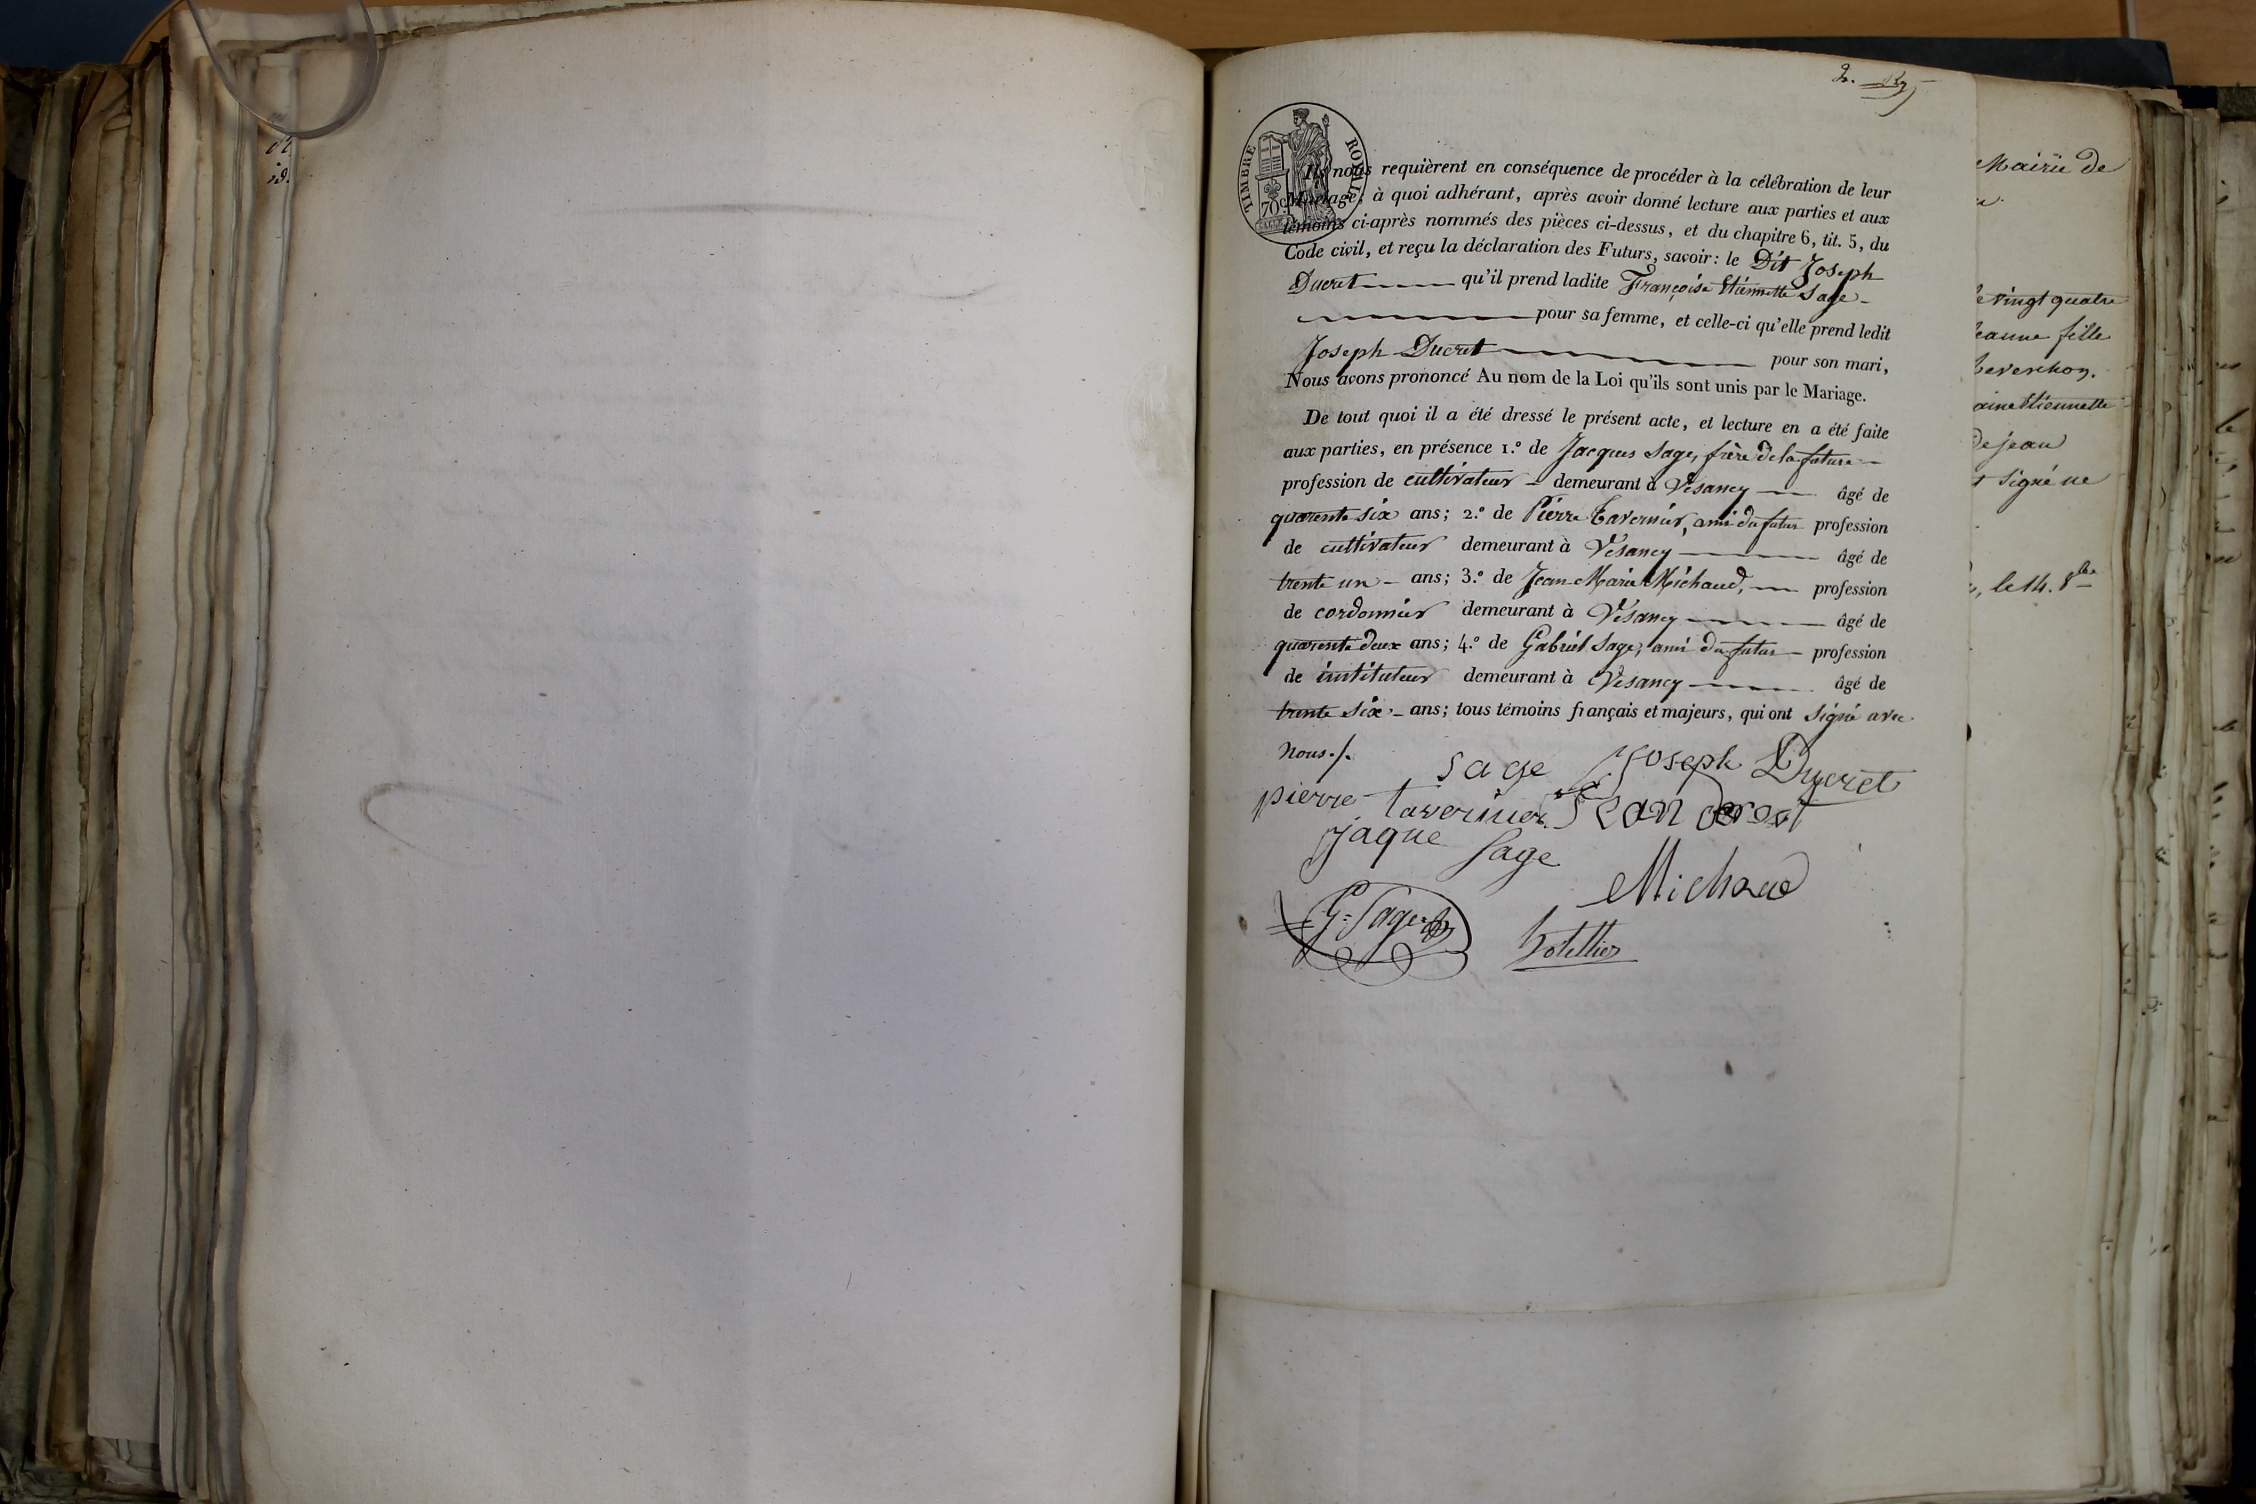 2.
TIMBRE ROYAL
70c
Ils nous requièrent en conséquence de procéder à la célébration de leur
Mariage; à quoi adhérant, après avoir donné lecture aux parties et aux
témoins ci-après nommés des pièces ci-dessus, et du chapitre 6, tit. 5, du
Code civil, et reçu la déclaration des Futurs, savoir: le Dit Joseph
Ducret qu'il prend ladite Françoise Etiennette Sage
pour sa femme, et celle-ci qu'elle prend ledit
Joseph Ducret pour son mari,
Nous avons prononcé Au nom de la Loi qu'ils sont unis par le Mariage.
De tout quoi il a été dressé le présent acte, et lecture en a été faite
aux parties, en présence 1.° de Jacques Sage, frère de la future
profession de cultivateur demeurant à Vesancy âgé de
quarente six ans; 2.° de Pierre Tavernier, ami du futur profession
de cultivateur demeurant à Vesancy âgé de
trente un ans; 3.° de Jean Marie Michaud, profession
de cordonnier demeurant à Vesancy âgé de
quarente deux ans; 4.° de Gabriel Sage, ami du futur profession
de instituteur demeurant à Vesancy âgé de
trente six ans; tous témoins français et majeurs, qui ont signé avec
Nous./.
sage Joseph Ducret
pierre tavernier Jean
jaque sage
Michaud
G. Sage
Mairie de
vingt quatre
jeanne fille
De jean
signé ne
le 14. 8bre